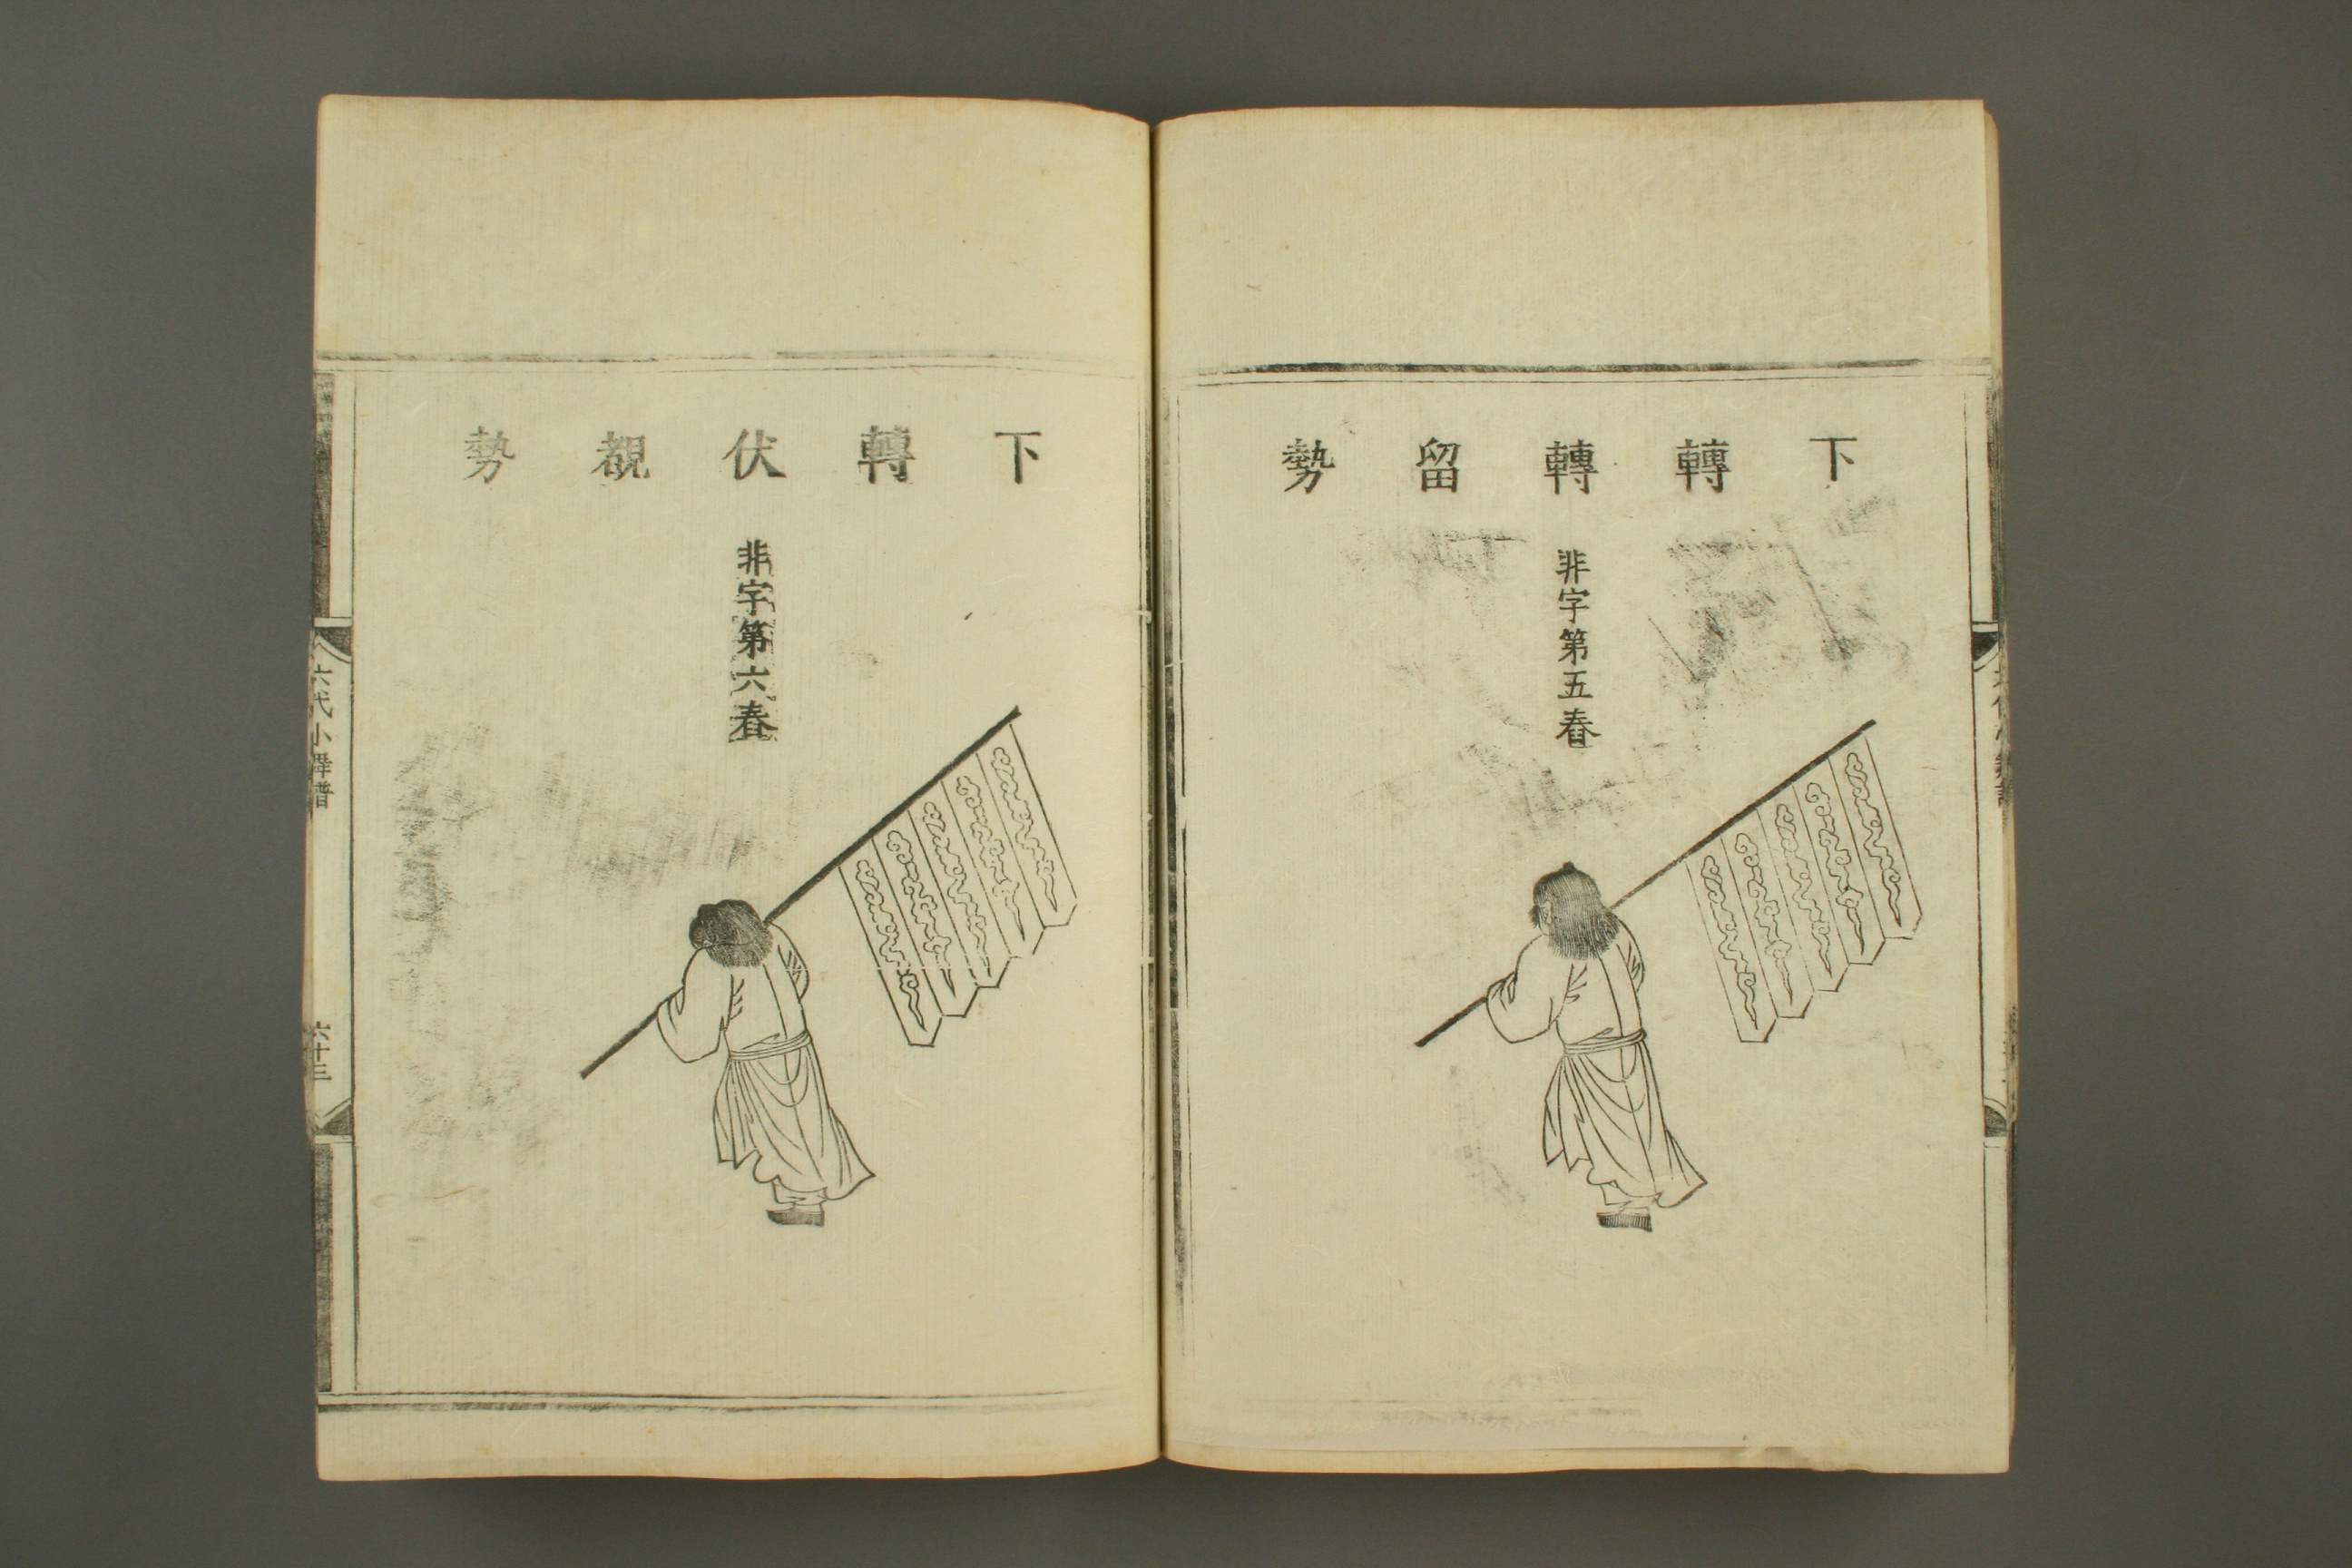 下轉轉留勢
非字第五舂
下轉伏覩勢
非字第六舂
六代小舞譜
六十三